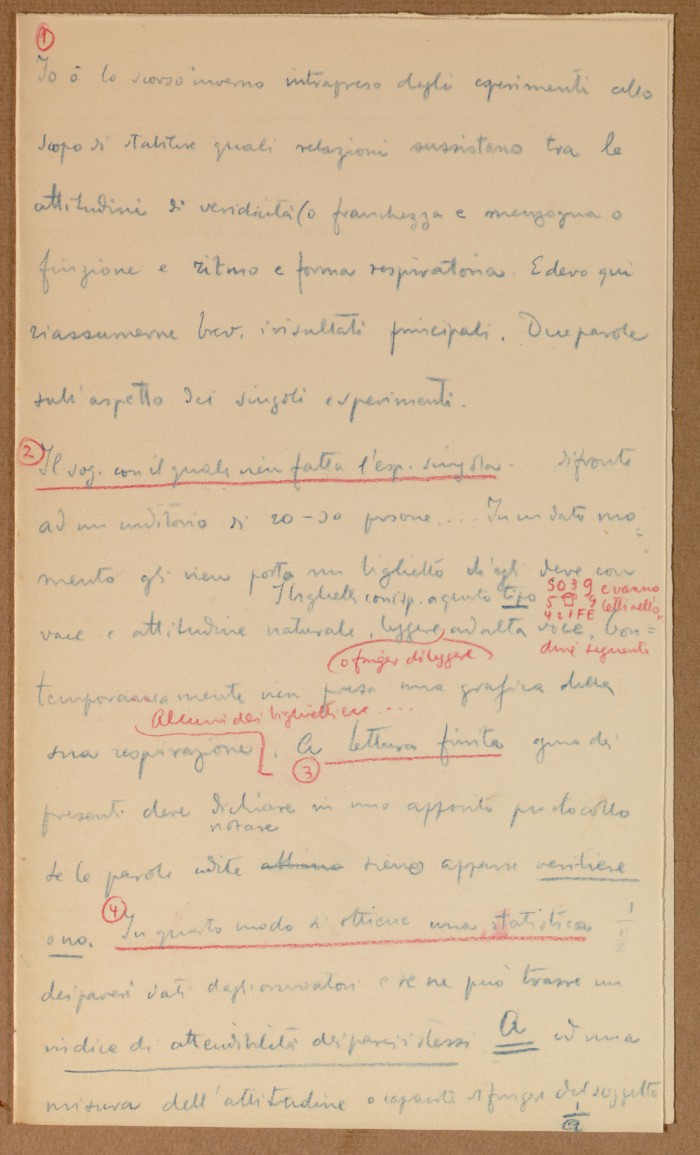 1
Io ò lo scorso inverno intrapreso degli esperimenti allo
scopo di stabilire quali relazioni sussistano tra le
attitudini di veridicità (o franchezza e menzogna o
finzione e ritmo e forma respiratoria. E devo qui
riassumerne brev. i risultati principali. Due parole
sull'aspetto dei singoli esperimenti.
2 Il sog. con il quale vien fatta l'esp. singola. di fronte
ad un uditorio di 20-30 persone.... In un dato mo
mento gli vien porto un biglietto ch'egli deve con
I biglietti corrisp. a questo tipo
5039 e vanno
5 9 letti nell'or
42 IFE
dine seguente
voce e attitudine naturale, leggere ad alta voce. Con=
(o finger di leggere)
temporaneamente vien presa una grafica della
Alcuni dei biglietti ecc....
sua respirazione. A lettura finita ognu dei
3
presenti deve dichiare in uno apposito protocollo
notare
se le parole udite siano apparse veritiere
o no. 4 In questo modo si ottiene una statistica
1
1
2
dei pareri dati dagli osservatori e se ne può trarre un
indice di attendibilità dei pareri stessi A ed una
misura dell'attitudine o capacità di fingere del soggetto
1
a